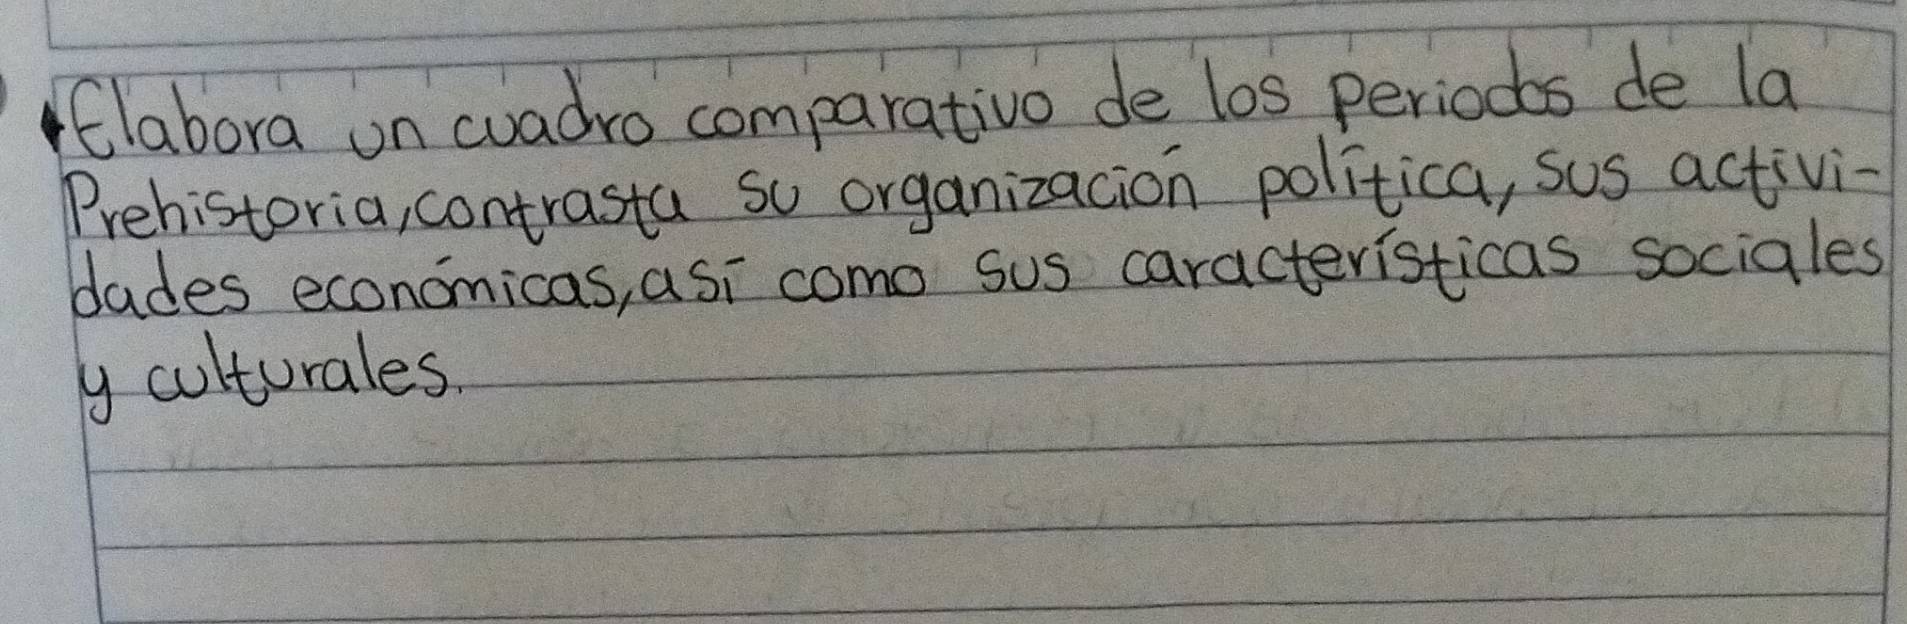 Elabora un cuadro comparativo de los periodos de la
Prehistoria, contrasta su organización política, sus activi-
dades económicas, así como sus características sociales
y culturales.